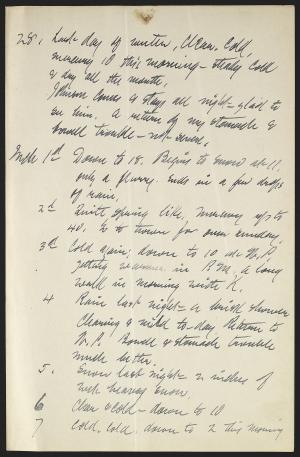 28. Last day of winter, Clear. Cold,
mercury 10 this morning - steady cold
& dry all the month.
comes & stays all night - glad to
see him. A return of my stomach &
bowel trouble - not severe.
March 1st Down to 18. Begins to snow at 11.
only a flurry. Ends in a few drops
of rain.
2d Quite spring like, mercury up to
40. to town for
3d Cold again; down to 10 at W.P.
getting warmer in P.M. a long
walk in morning with
4 Rain last night - a brisk shower
Clearing & mild to-day. Return to
W.P. Bowel & stomach trouble
much better.
5. Snow last night - 2 inches of
wet heavy snow.
6 Clear & cold - down to 10
7 Cold, cold. down to 2 this morning